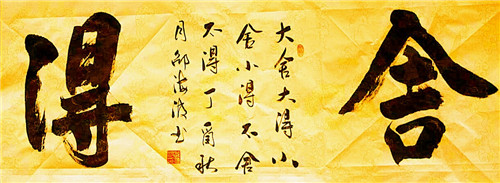 舍
大舍大得小
舍小得不舍
不得丁酉秋
月海书
得